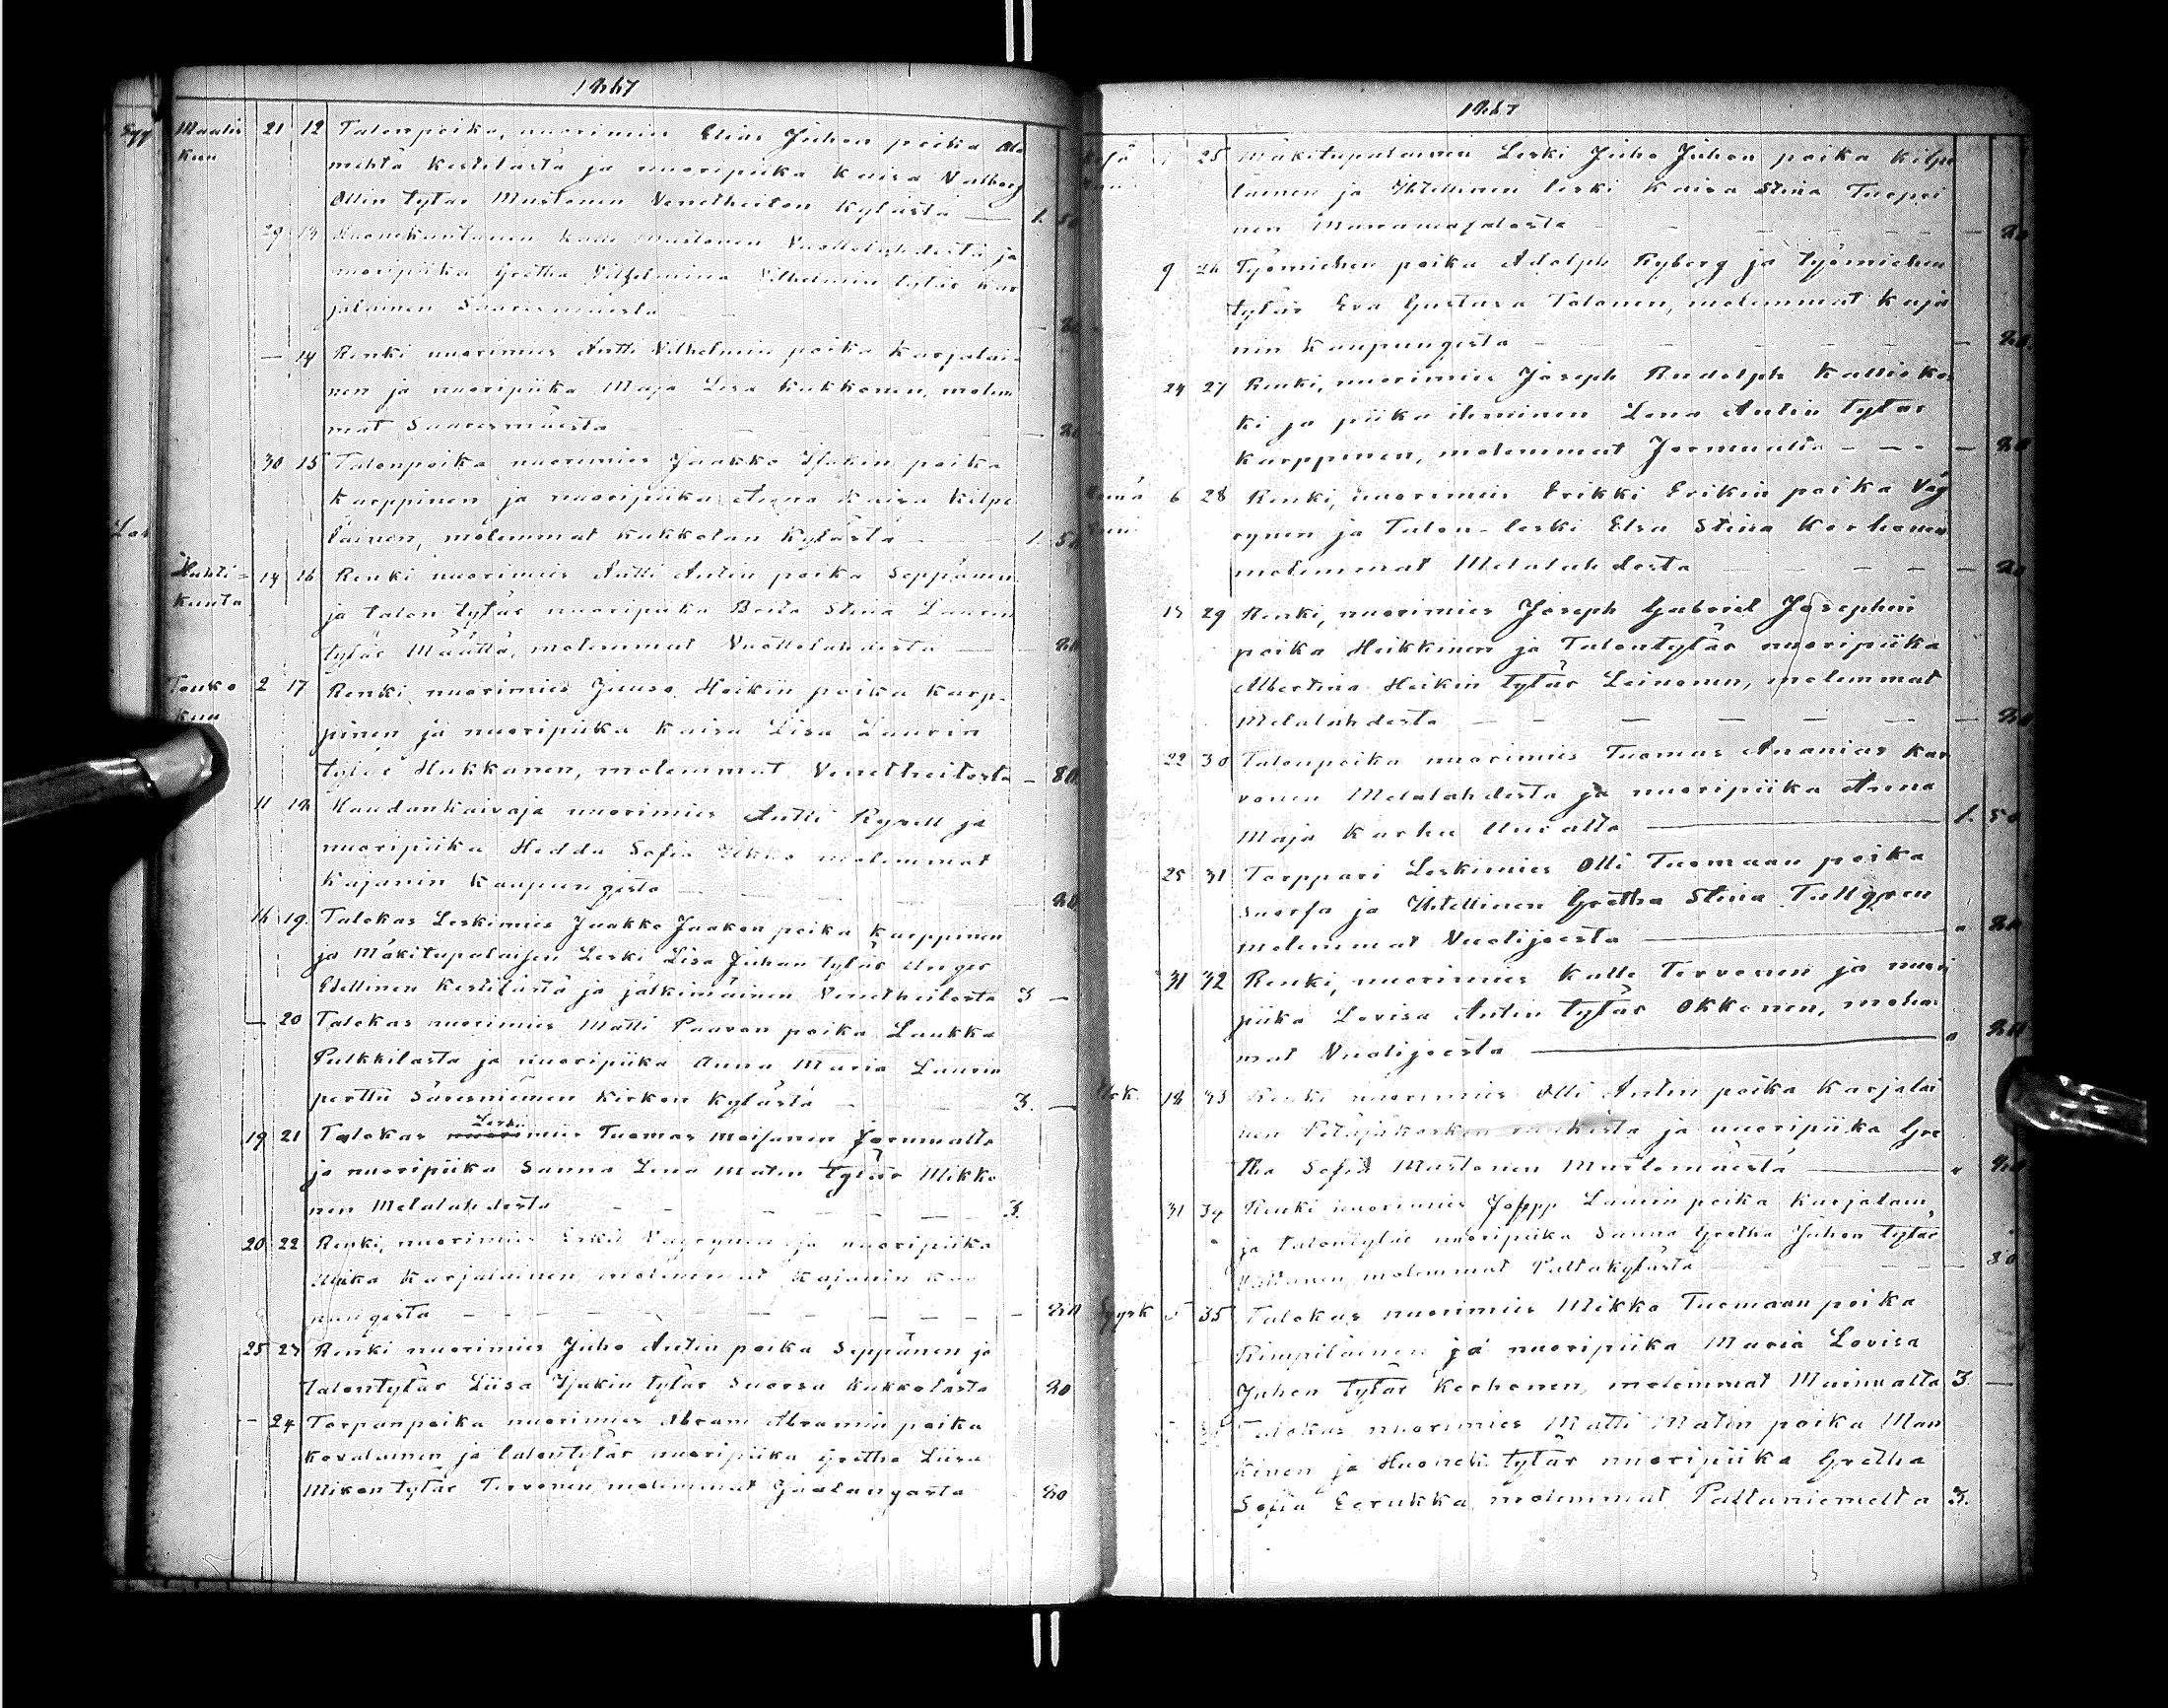 1867
Maalis 21 12 Talonpoika, nuorimies Elias Juhon poika Ala
kuu mehtä Kestilästä ja nuoripiika Kaisa Valborg
Ollin tytär Mustonen Venetheiton kylästä — 1. 50
29 13 Huonekuntanen Kalle Mustonen Vuottolahdesta ja
nuoripiika Gretha Vilhelmina Vilhelmin tytär Kar
jalainen Saaresmäestä — 80
— 14 Renki nuorimies Antti Vilhelmin poika Karjalai-
nen ja nuoripiika Maja Lisa Kukkonen, molem
mat Saaresmäestä — 80
30 15 Talonpoika nuorimies Jaakko Isakin poika
Karppinen ja nuoripiika Anna Kaisa Kilpe
läinen, molemmat Kukkolan kylästä — 1. 50
Huhti= 14 16 Renki nuorimies Antti Antin poika Seppänen
kuuta ja talon tytär nuoripiika Brita Stina Laurin
tytär Määttä, molemmat Vuottolahdesta — 80
Touko 2 17 Renki, nuorimies Juuso Heikin poika Karp-
kuu pinen ja nuoripiika Kaisa Lisa Laurin
tytär Hukkanen, molemmat Venetheitosta — 80
11 18 Haudankaivaja nuorimies Antti Ryhell ja
nuoripiika Hedda Sofia molemmat
Kajanin Kaupungista 80
16 19. Talokas Leskimies Jaakko Jaakon poika Karppinen
ja Mäkitupalaisen Leski Lisa Juhan tytär Unger
Edellinen Kestilästä ja jälkimäinen Venetheitosta 3 —
— 20 Talokas nuorimies Matti Paavon poika Laukka
Pulkkilasta ja nuoripiika Anna Maria Laurin
perttu Säresniemen Kirkon kylästä — 3. —
19 21 Talokas Leski nuorimies Tuomas Moisanen Jormualta
ja nuoripiika Sanna Lena Matin tytär Mikko
nen Melalahdesta — 3.
20 22 Renki, nuorimies Erkki Väyrynen ja nuoripiika
Ulrika Karjalainen molemmat Kajanin Kau
pungista — 80
25 23 Renki nuorimies Juho Antin poika Seppänen ja
talontytär Liisa Isakin tytär Suorsa Kukkolasta 80
— 24 Torpanpoika nuorimies Abram Abramin poika
Kovalainen ja talontytär nuoripiika Gretha Liisa
Mikon tytär Tervonen molemmat Jaalangasta 80
1867
Kesä 25 Mäkitupalainen Leski Juho Juhon poika Kilpe
kuu läinen ja Itsellinen leski Kaisa Stina Turpei
nen — 80
9 26 Työmiehen poika Adolph Ryberg ja työmiehen
tytär Eva Gustava Tolonen, molemmat Kaja
nin Kaupungista — 80.
24 27 Renki, nuorimies Joseph Rudolph Kalliokos
ki ja piika ihminen Lena Antin tytär
Karppinen, molemmat Jormualta — 80
Heinä 6 28 Renki, nuorimies Erikki Erikin poika Väy
kuu rynen ja Talon-leski Elsa Stina Korhonen
molemmat Melalahdesta — 80
15 29 Renki, nuorimies Joseph Gabriel Josephin
poika Heikkinen ja Talontytär nuoripiika
Albertina Heikin tytär Leinonen, molemmat
Melalahdesta — 80
22 30 Talonpoika nuorimies Tuomas Ananias Kar
vonen Melalahdesta ja nuoripiika Anna
Maja Karhu — 1. 50
25 31 Torppari Leskimies Olli Tuomaan poika
Suorsa ja Itsellinen Gretha Stina Tullgren
molemmat Vuolijoesta — " 80
31 32 Renki, nuorimies Kalle Tervonen ja nuori
piika Lovisa Antin tytär Okkonen, molem
mat Vuolijoesta — " 80
Elok. 18 33 Renki nuorimies Olli Antin poika Karjalai
nen ja nuoripiika Gre
tha Sofia Mustonen Mustomäestä — " 80
31 34 Renki nuorimies Laurin poika Karjalain,
ja talontytär nuoripiika Sanna Gretha Juhon tytär
molemmat Paltakylästä — 80
Syysk 5 35 Talokas nuorimies Mikko Tuomaan poika
Kimpiläinen ja nuoripiika Maria Lovisa
Juhon tytär Korhonen, molemmat Mainualta 3. —
Talokas nuorimies Matti Matin poika Man
kinen ja Huonek. tytär nuoripiika Gretha
Sofia Eerukka molemmat Paltaniemeltä 3.